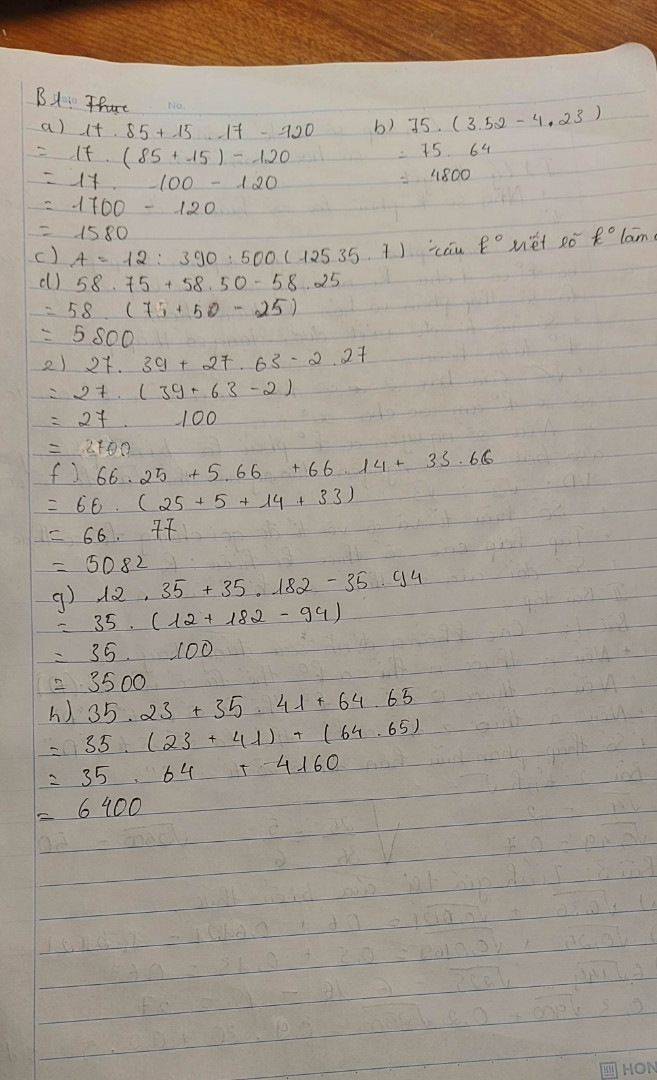 B1: Thực No.
a) 17 . 85 + 15 . 17 - 120 b) 75 . (3.52 - 4.23)
= 17 . (85 + 15) - 120 = 75 . 64
= 17 . 100 - 120 = 4800
= 1700 - 120
= 1580
c) A = 12 : 390 : 500 (125 35 . 7) câu k° viết rõ k° làm
d) 58 . 75 + 58 . 50 - 58 . 25
= 58 . (75 + 50 - 25)
= 5800
e) 27 . 39 + 27 . 63 - 2 . 27
= 27 . (39 + 63 - 2)
= 27 . 100
= 2700
f) 66 . 25 + 5 . 66 + 66 . 14 + 33 . 66
= 66 . (25 + 5 + 14 + 33)
= 66 . 77
= 5082
g) 12 . 35 + 35 . 182 - 35 . 94
= 35 . (12 + 182 - 94)
= 35 . 100
= 3500
h) 35 . 23 + 35 . 41 + 64 . 65
= 35 . (23 + 41) + (64 . 65)
= 35 . 64 + 4160
= 6400
HON